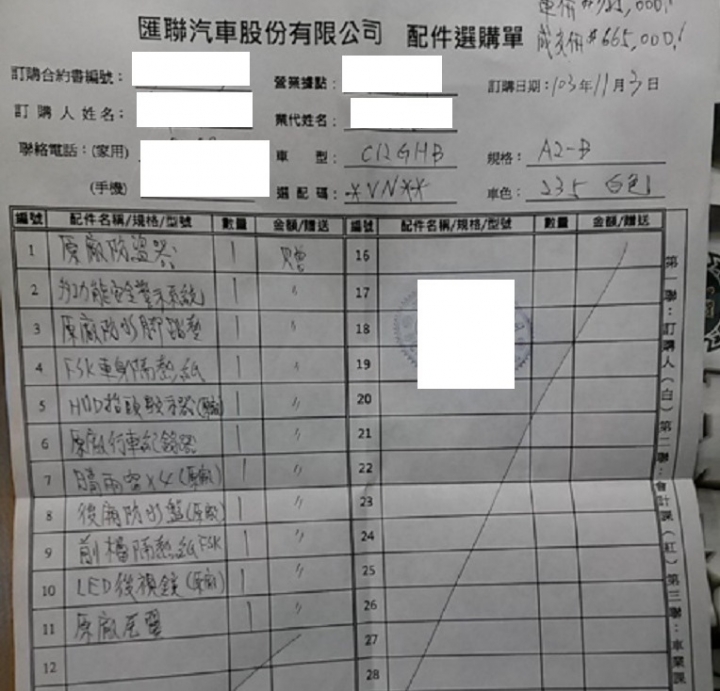 車價$725,000!
匯聯汽車股份有限公司 配件選購單
成交價$665,000!
訂購合約書編號： 營業據點： 訂購日期：103年11月3日
訂購人姓名： 業代姓名：
聯絡電話：(家用) 車型：C12GHB 規格：A2-B
(手機) 選配碼：*VN** 車色：235 白色
編號 配件名稱/規格/型號 數量 金額/贈送 編號 配件名稱/規格/型號 數量 金額/贈送
1 原廠防盜器 1 贈 16
2 多功能安全警示系統 1 〃 17
3 原廠防水腳踏墊 1 〃 18
4 FSK車身隔熱紙 1 〃 19
5 HUD抬頭顯示器(原廠) 1 〃 20
6 原廠行車記錄器 1 〃 21
7 晴雨窗x4(原廠) 1 〃 22
8 後廂防水盤(原廠) 1 〃 23
9 前檔隔熱紙FSK 1 〃 24
10 LED後視鏡(原廠) 1 〃 25
11 原廠尾翼 1 〃 26
12 27
28
第一聯：訂購人(白) 第二聯：會計課(紅) 第三聯：車業課